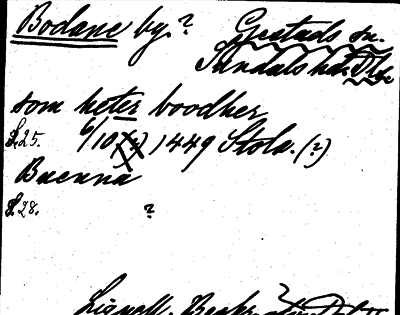 Bodane by? Gestads sn.
Sundals hd. Dls
som heter boodher
S.25. 6/10 (?) 1449 Stola. (?)
Buenna
S.28. ?
Lignell, Beskr.